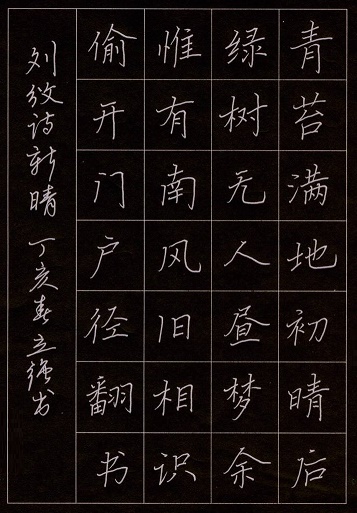 青苔满地初晴后
绿树无人昼梦余
惟有南风旧相识
偷开门户径翻书
刘攽诗新晴 丁亥春立强书